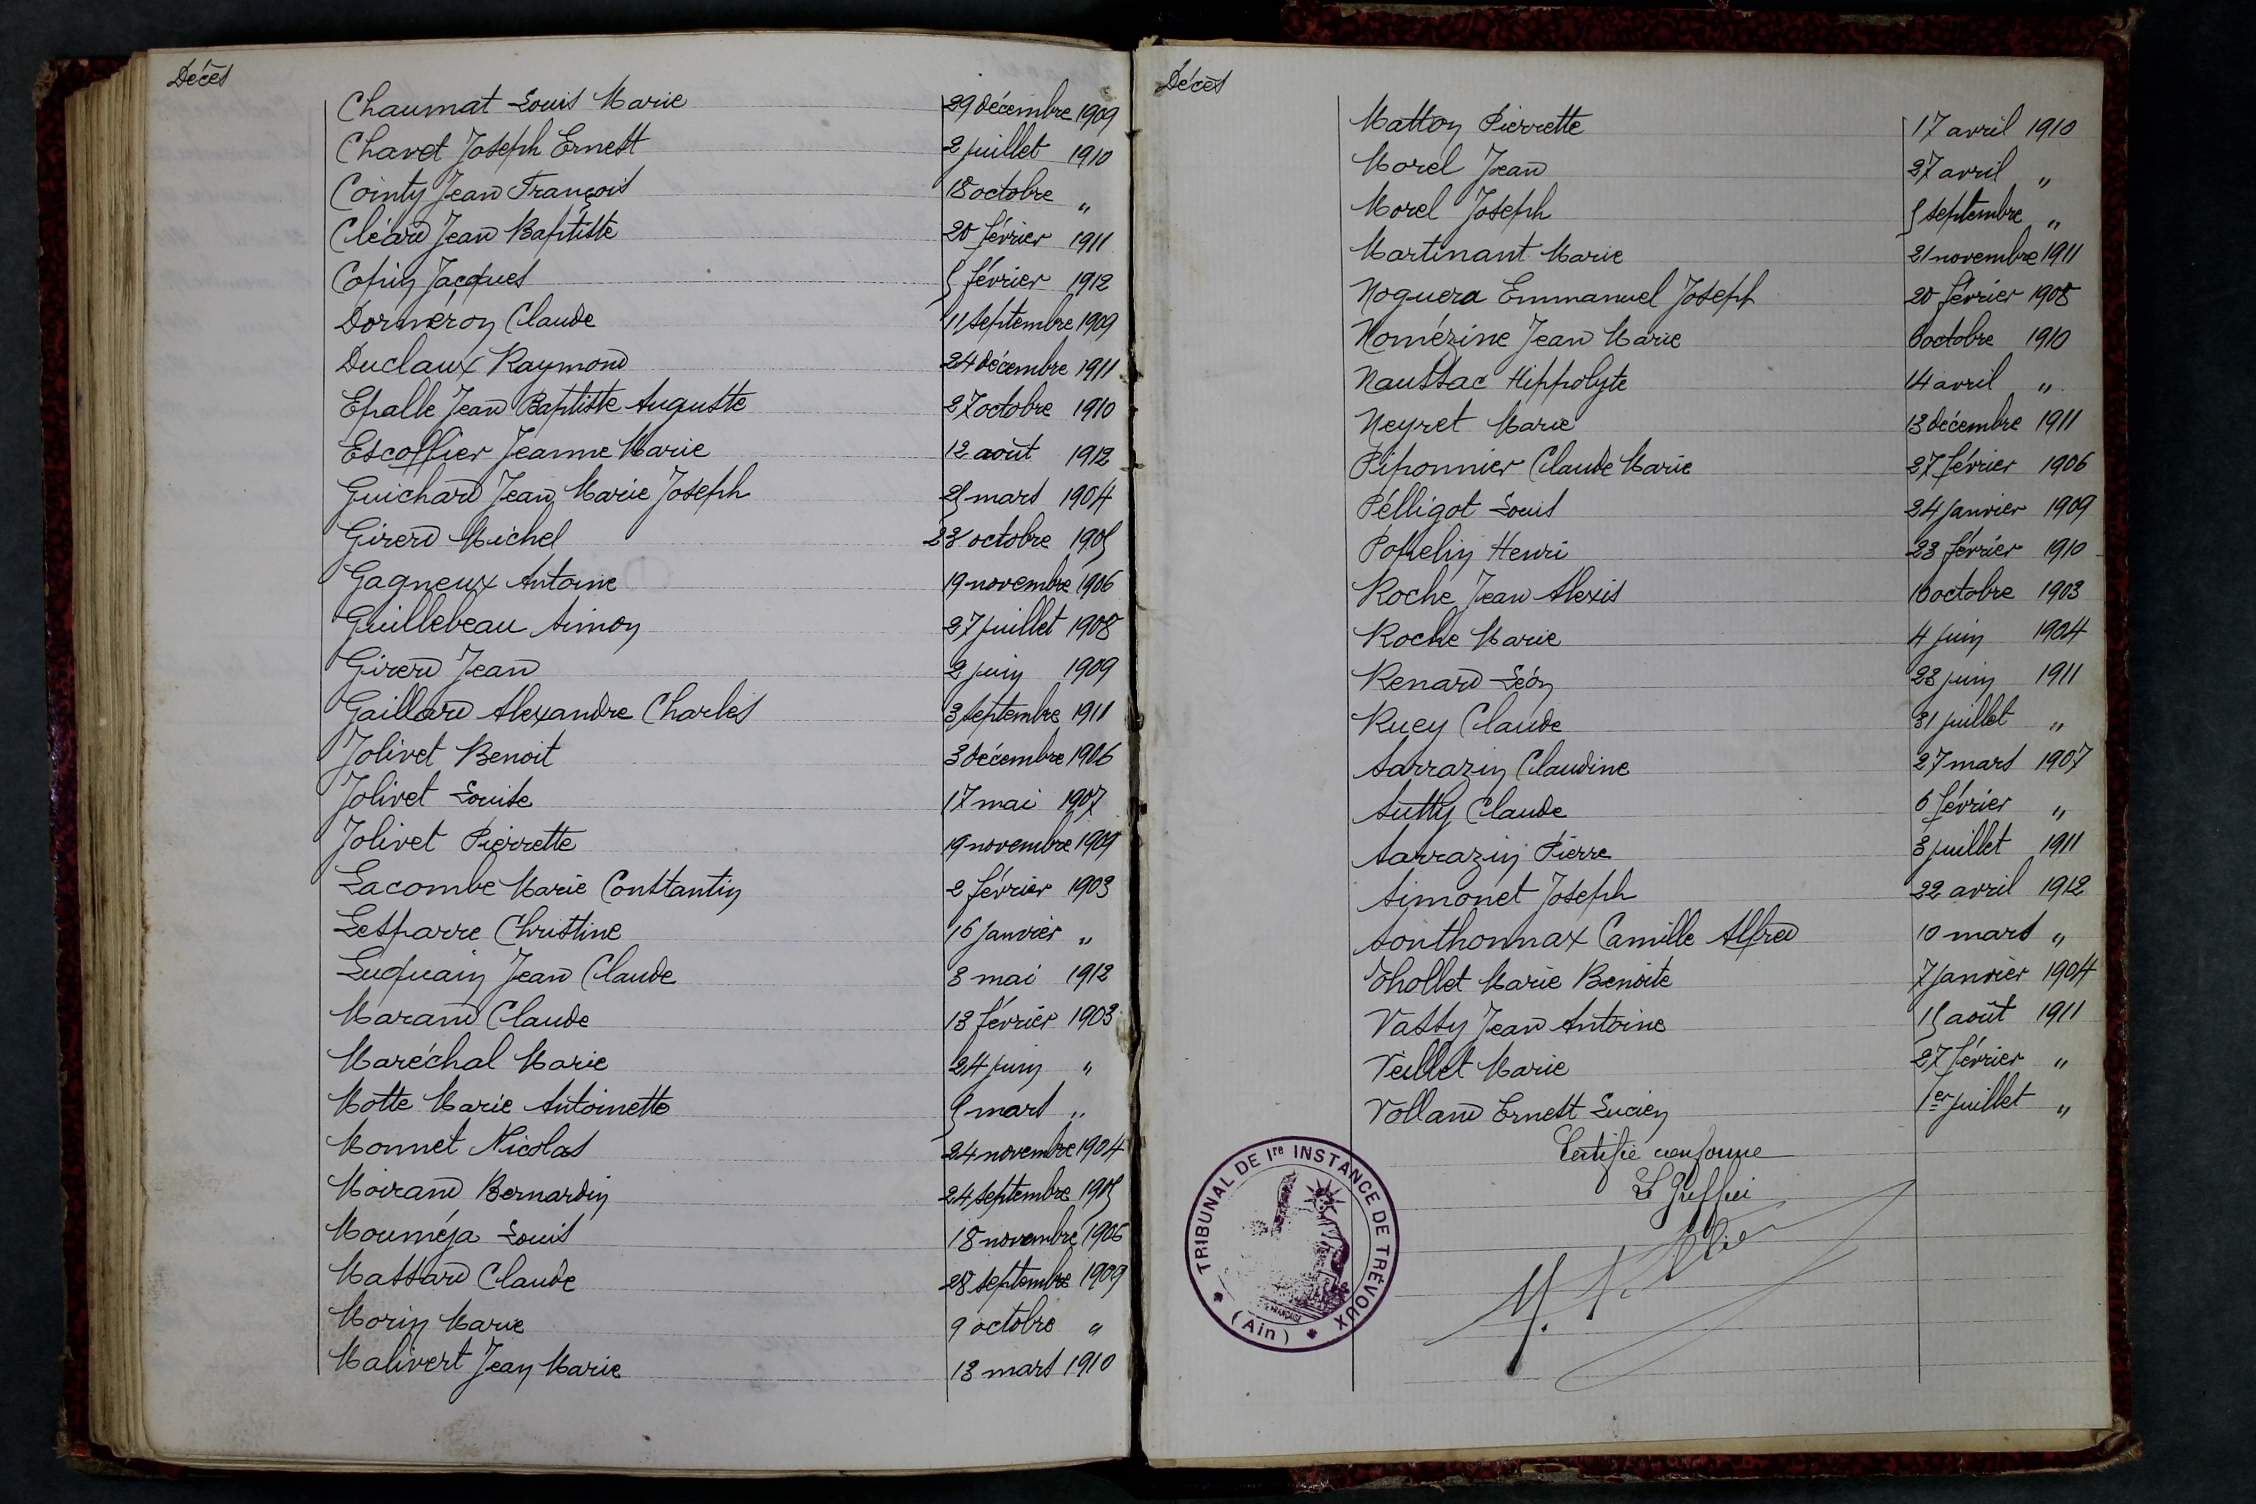 Décès
Chaumat Louis Marie 29 décembre 1909
Chavet Joseph Ernest 2 juillet 1910
Cointy Jean François 18 octobre "
Cléard Jean Baptiste 20 février 1911
Copin Jacques 5 février 1912
Dorneron Claude 11 septembre 1909
Duclaux Raymond 24 décembre 1911
Epalle Jean Baptiste Auguste 27 octobre 1910
Escoffier Jeanne Marie 12 août 1912
Guichard Jean Marie Joseph 25 mars 1904
Girerd Michel 23 octobre 1905
Gagneux Antoine 19 novembre 1906
Guillebeau Simon 27 juillet 1908
Girerd Jean 2 juin 1909
Gaillard Alexandre Charles 3 septembre 1911
Jolivet Benoit 3 décembre 1906
Jolivet Louise 17 mai 1907
Jolivet Pierrette 19 novembre 1909
Lacombe Marie Constantin 2 février 1903
Lesparre Christine 16 janvier "
Luquain Jean Claude 3 mai 1912
Marand Claude 13 février 1903
Maréchal Marie 24 juin "
Motte Marie Antoinette 5 mars "
Monnet Nicolas 24 novembre 1904
Moirand Bernardin 24 septembre 1905
Mouméja Louis 18 novembre 1906
Massard Claude 28 septembre 1909
Morin Marie 9 octobre "
Malivert Jean Marie 13 mars 1910
Décès
Matton Pierrette 17 avril 1910
Morel Jean 27 avril "
Morel Joseph 5 septembre "
Martinant Marie 21 novembre 1911
Noguera Emmanuel Joseph 20 février 1908
Nomézine Jean Marie 6 octobre 1910
Naussac Hippolyte 14 avril "
Neyret Marie 13 décembre 1911
Piponnier Claude Marie 27 février 1906
Pélligot Louis 24 janvier 1909
Popelin Henri 23 février 1910
Roche Jean Alexis 16 octobre 1903
Roche Marie 4 juin 1904
Renard Léon 23 juin 1911
Ruey Claude 31 juillet "
Sarrazin Claudine 27 mars 1907
Sutty Claude 6 février "
Sarrazin Pierre 3 juillet 1911
Simonet Joseph 22 avril 1912
Sonthonnax Camille Alfred 10 mars "
Thollet Marie Benoite 7 janvier 1904
Vassy Jean Antoine 15 août 1911
Veillet Marie 27 février "
Volland Ernest Lucien 1er juillet "
Certifié conforme
Le Greffier
TRIBUNAL DE Ire INSTANCE DE TRÉVOUX
(Ain)